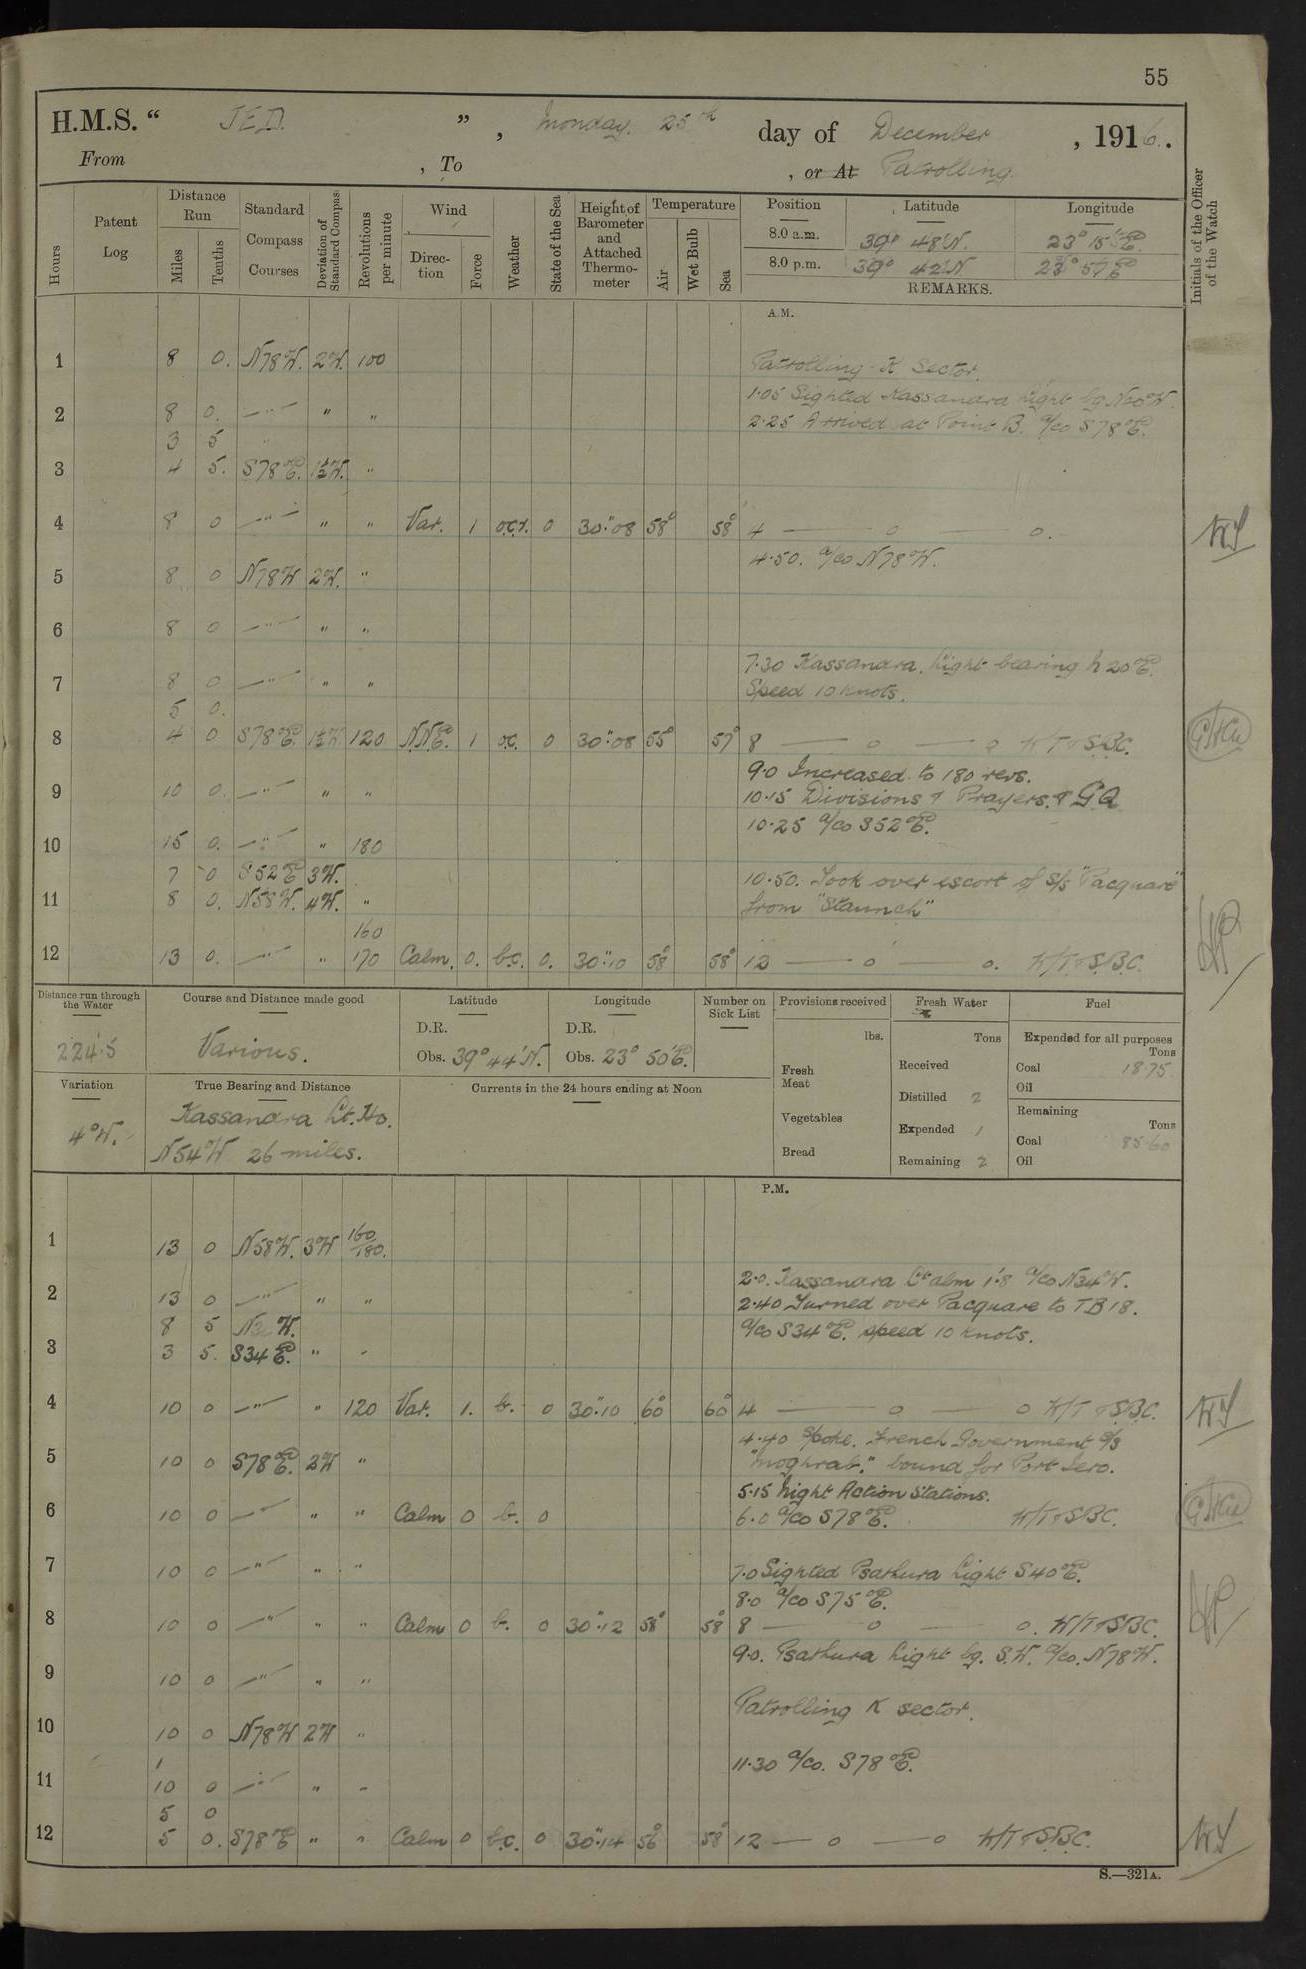 55
H.M.S. " JED. ", Monday. 25th day of December, 1916.
From , To , or At Patrolling.
Hours
Patent Log
Distance Run
Miles
Tenths
Standard Compass Courses
Deviation of Standard Compass
Revolutions per minute
Wind
Direction
Force
Weather
State of the Sea
Height of Barometer and Attached Thermometer
Temperature
Air
Wet Bulb
Sea
Position Latitude Longitude
8.0 a.m. 39° 48'N. 23° 15'E.
8.0 p.m. 39° 42'N 23° 57'E
REMARKS.
Initials of the Officer of the Watch
A.M.
1 8 0. N78°W. 2W. 100 Patrolling K Sector.
1.05 Sighted Kassandra Light bg N60°W.
2 8 0. —"— " " 2.25 Arrived at Point B. a/co S78°E.
3 5
3 4 5. S78°E. 1½W. "
4 8 0 —"— " " Var. 1 o.c.r. 0 30".08 58° 58° 4 — 0 — 0.
4.50. a/co N78°W.
5 8 0 N78W 2W. "
6 8 0 —"— " "
7.30 Kassandra. Light bearing N20°E.
7 8 0 —"— " " Speed 10 knots.
5 0.
8 4 0 S78°E. 1½W. 120 N.N.E. 1 o.c. 0 30".08 55° 57° 8 — 0 — 0 W/T & S.B.C.
9.0 Increased to 180 revs.
9 10 0. —"— " " 10.15 Divisions & Prayers. & G.Q
10.25 a/co S52°E.
10 15 0. —"— " 180
7 0 S52°E 3W. 10.50. Took over escort of S/S "Pacquare"
11 8 0. N58°W. 4W. " from "Staunch"
160
12 13 0. —"— " 170 Calm. 0. b.c. 0. 30".10 58° 58° 12 — 0 — 0. W/T & S.B.C.
Distance run through the Water
224.5
Course and Distance made good
Various.
Latitude
D.R.
Obs. 39° 44'N.
Longitude
D.R.
Obs. 23° 50'E.
Number on Sick List
Provisions received
lbs.
Fresh Meat
Vegetables
Bread
Fresh Water
Tons
Received
Distilled 2
Expended 1
Remaining 2
Fuel
Expended for all purposes
Tons
Coal 18.75
Oil
Remaining
Tons
Coal 85.60
Oil
Variation
4°W.
True Bearing and Distance
Kassandra Lt. Ho.
N54°W 26 miles.
Currents in the 24 hours ending at Noon
P.M.
1 13 0 N58°W. 3W 160/180.
2.0. Kassandra Lt abm 1'.8 a/co N34°W.
2 13 0 —"— " " 2.40 Turned over Pacquare to TB18.
8 5 W. a/co S34°E. speed 10 knots.
3 3 5. S34°E. " "
4 10 0 —"— " 120 Var. 1. b. 0 30".10 60° 60° 4 — 0 — 0 W/T & S.B.C.
4.40 Spoke. French Government S/S
5 10 0 S78°E. 2W " "Moghrab," bound for Port Iero.
5.15 Night Action Stations.
6 10 0 —"— " " Calm 0 b. 0 6.0 a/co S78°E. W/T & S.B.C.
7 10 0 —"— " " 7.0 Sighted Psathura Light S40°E.
8.0 a/co S75°E.
8 10 0 —"— " " Calm 0 b. 0 30".12 58° 58° 8 — 0 — 0. W/T & S.B.C.
9.0. Psathura Light bg. S.W. a/co. N78°W.
9 10 0 —"— " "
Patrolling K sector.
10 10 0 N78°W 2W "
11.30 a/co. S78°E.
11 10 0 —"— " "
5 0
12 5 0. S78°E " " Calm 0 b.c. 0 30".14 56° 58° 12 — 0 — 0 W/T & S.B.C.
S.—321A.